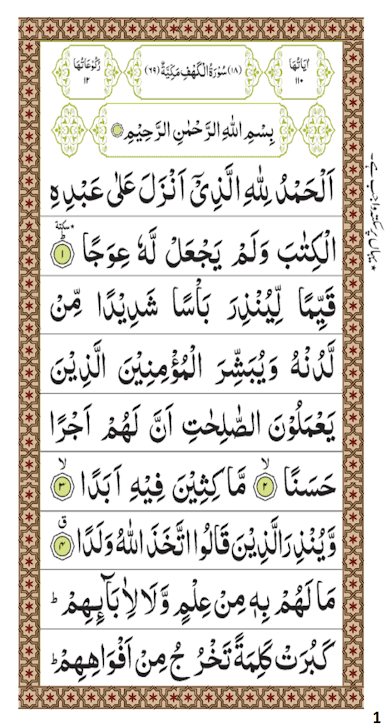 اٰيَاتُهَا ١١٠
(١٨) سُوْرَةُ الْكَهْفِ مَكِّيَّةٌ (٦٩)
رُكُوْعَاتُهَا ١٢
بِسْمِ اللهِ الرَّحْمٰنِ الرَّحِيْمِ
اَلْحَمْدُ لِلّٰهِ الَّذِيْۤ اَنْزَلَ عَلٰى عَبْدِهِ
الْكِتٰبَ وَلَمْ يَجْعَلْ لَّهٗ عِوَجًا ؕ سكتة ﴿١﴾
قَيِّمًا لِّيُنْذِرَ بَاْسًا شَدِيْدًا مِّنْ
لَّدُنْهُ وَيُبَشِّرَ الْمُؤْمِنِيْنَ الَّذِيْنَ
يَعْمَلُوْنَ الصّٰلِحٰتِ اَنَّ لَهُمْ اَجْرًا
حَسَنًا ۙ﴿٢﴾ مَّاكِثِيْنَ فِيْهِ اَبَدًا ۙ﴿٣﴾
وَّيُنْذِرَ الَّذِيْنَ قَالُوا اتَّخَذَ اللهُ وَلَدًا ۗ﴿٤﴾
مَا لَهُمْ بِهٖ مِنْ عِلْمٍ وَّلَا لِاٰبَآئِهِمْ ؕ
كَبُرَتْ كَلِمَةً تَخْرُجُ مِنْ اَفْوَاهِهِمْ ؕ
1